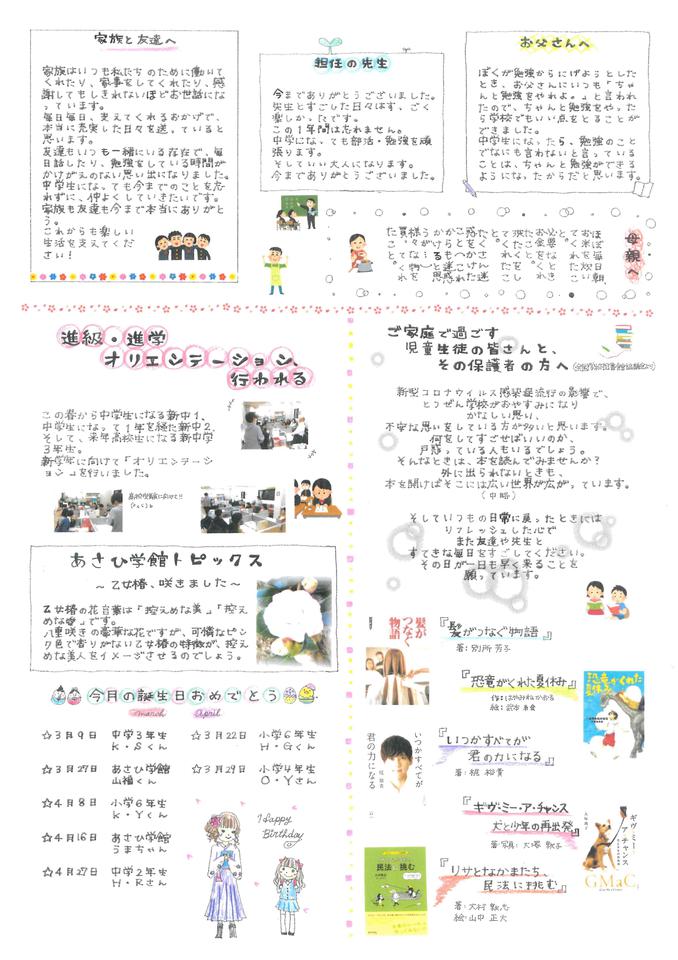 家族と友達へ
家族はいつも私たちのために働いて
くれたり、家事をしてくれたり、感
謝してもしきれないほどお世話にな
っています。
毎日毎日、支えてくれるおかげで、
本当に充実した日々を送っていると
思います。
友達もいつも一緒にいる存在で、毎
日話したり、勉強をしている時間が
かけがえのない思い出になりました。
中学生になっても今までのことを忘
れずに、仲よくしていきたいです。
家族も友達も今まで本当にありがと
う。
これからも楽しい
生活を支えてくだ
さい!
担任の先生
今までありがとうございました。
先生とすごした日々はす、ごく
楽しかったです。
この1年間は忘れません。
中学になっても部活・勉強を頑
張ります。
そしていい大人になります。
今までありがとうございました。
お父さんへ
ぼくが勉強からにげようとした
とき、お父さんにいつも「ちゃ
んと勉強をやれよ。」と言われ
たので、ちゃんと勉強をやった
ら学校でもいい点をとることが
できました。
中学生になったら、勉強のこと
でなにも言わないと言っている
ことは、ちゃんと勉強ができる
ようになったからだと思います。
母親へ
ほぼ毎日朝、
進級・進学
オリエンテーション、
行われる
この春から中学生になる新中1、
中学生になって1年を経た新中2、
そして、来年高校生になる新中学
3年生。
新学年に向けて「オリエンテーシ
ョン」を行いました。
高校受験に向けて!!
あさひ学館トピックス
~乙女椿、咲きました~
乙女椿の花言葉は「控えめな美」「控え
めな愛」です。
八重咲きの豪華な花ですが、可憐なピン
ク色で香りがない乙女椿の特徴が、控え
めな美人をイメージさせるのでしょう。
今月の誕生日おめでとう
march April
☆3月9日 中学3年生
K・Sくん
☆3月22日 小学6年生
H・Gくん
☆3月27日 あさひ学館
山福くん
☆3月29日 小学4年生
O・Yさん
☆4月8日 小学6年生
K・Yくん
☆4月16日 あさひ学館
うまちゃん
☆4月27日 中学2年生
H・Rさん
Happy
Birthday
ご家庭で過ごす
児童生徒の皆さんと、
その保護者の方へ
新型コロナウイルス感染症流行の影響で、
とつぜん学校がおやすみになり
かなしい思い、
不安な思いをしている方が多いと思います。
何をしてすごせばいいのか、
戸惑っている人もいるでしょう。
そんなときは、本を読んでみませんか?
外に出られないときも、
本を開けばそこには広い世界が広がっています。
(中略)
そしていつもの日常に戻ったときには
リフレッシュした心で
また友達や先生と
すてきな毎日をすごしてください。
その日が一日も早く来ることを
願っています。
髪が
つなぐ
物語
『髪がつなぐ物語』
著:別所芳子
『恐竜がくれた夏休み』
作:はやみねかおる
絵:武本糸会
恐竜がくれた
夏休み
いつかすべてが
君の力になる
梶裕貴
『いつかすべてが
君の力になる』
著:梶裕貴
『ギヴ・ミー・ア・チャンス
犬と少年の再出発』
著・写真:大塚敦子
ギヴ・ミー・
ア・チャンス
GMaC
民法に挑む
『リサとなかまたち、
民法に挑む』
著:大村敦志
絵:山中正大